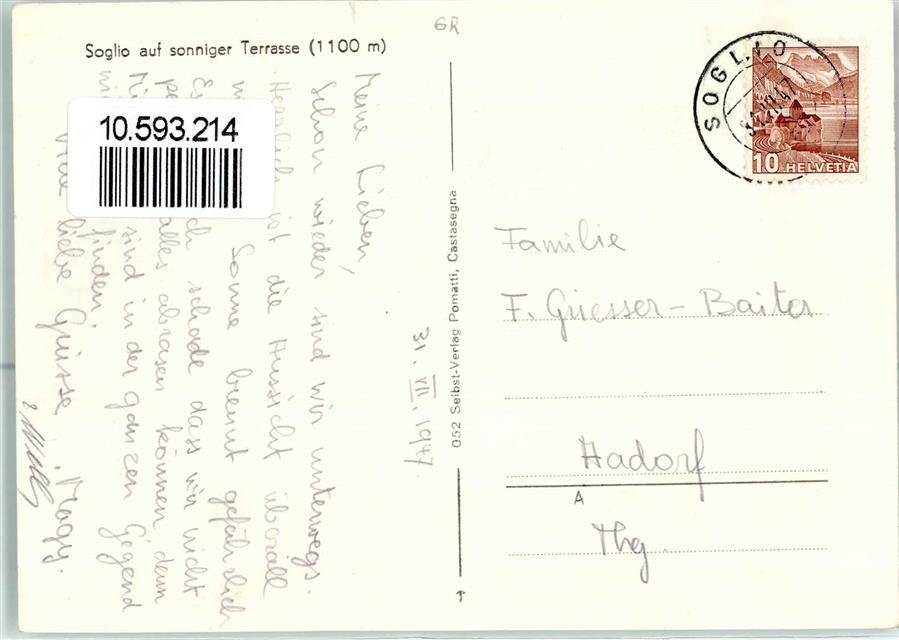 GR
Soglio auf sonniger Terrasse (1100 m)
10.593.214
SOGLIO
10 HELVETIA
31. VII. 1947
Meine Lieben,
Schon wieder sind wir unterwegs.
Herrlich ist die Aussicht überall
Sonne brennt gefährlich
schade dass wir nicht
alles abrasen können denn
sind in der ganzen Gegend
finden.
liebe Grüsse Mägy.
& Willy
052 Selbst-Verlag Pomatti, Castasegna
Familie
F. Griesser-Baiter
Aadorf
A
Thg.